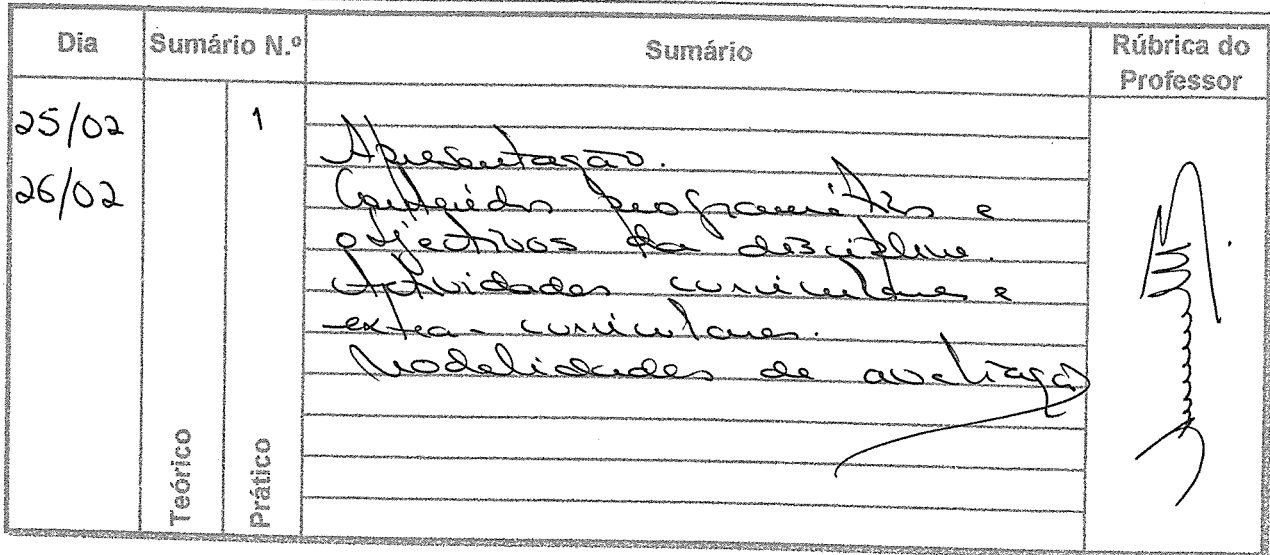 Dia Sumário N.º Sumário Rúbrica do Professor
25/02 1 Apresentação.
26/02 Conteúdos programáticos e
objectivos da disciplina.
Actividades curriculares e
extra-curriculares.
Modalidades de avaliação
Teórico Prático